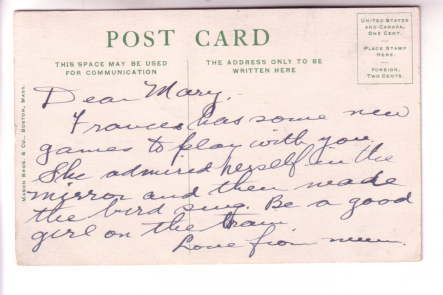 POST CARD
THIS SPACE MAY BE USED
FOR COMMUNICATION
THE ADDRESS ONLY TO BE
WRITTEN HERE
UNITED STATES
AND CANADA,
ONE CENT.
PLACE STAMP
HERE.
FOREIGN,
TWO CENTS.
MASON BROS. & CO., BOSTON, MASS.
Dear Mary,-
Frances has some new
games to play with you.
She admired herself in the
mirror and then made
the bird sing. Be a good
girl on the train.
Love from mum.